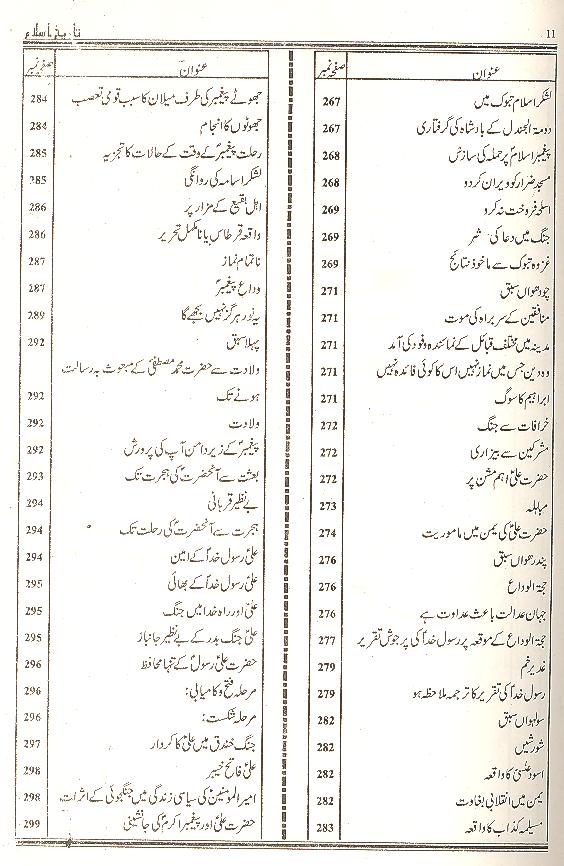 11
تاریخ اسلام
عنوان
صفحہ نمبر
لشکر اسلام تبوک میں
267
دومۃ الجندل کے بادشاہ کی گرفتاری
267
پیغمبر اسلامؐ پر حملہ کی سازش
268
مسجد ضرار کو ویران کر دو
268
اسلحہ فروخت نہ کرو
269
جنگ میں دعا کی شر
269
غزوہ تبوک سے ماخوذ نتائج
269
چودھواں سبق
271
منافقین کے سربراہ کی موت
271
مدینہ میں مختلف قبائل کے نمائندہ وفود کی آمد
271
وہ دین جس میں نماز نہیں اس کا کوئی فائدہ نہیں
271
ابراہیم کا سوگ
271
خرافات سے جنگ
272
مشرکین سے بیزاری
272
حضرت علیؑ اہم مشن پر
272
مباہلہ
273
حضرت علیؑ کی یمن میں ماموریت
274
پندرھواں سبق
276
حجۃ الوداع
276
جہان عدالت باعث عداوت ہے
276
حجۃ الوداع کے موقعہ پر رسول خداؐ کی پر جوش تقریر
277
غدیر خم
279
رسول خداؐ کی تقریر کا ترجمہ ملاحظہ ہو
279
سولہواں سبق
282
شورشیں
282
اسود عنسی کا واقعہ
282
یمن میں انقلابی بغاوت
282
مسیلمہ کذاب کا واقعہ
283
عنوان
صفحہ نمبر
جھوٹے پیغمبر کی طرف میلان کا سبب قومی تعصب
284
جھوٹوں کا انجام
284
رحلت پیغمبرؐ کے وقت کے حالات کا تجزیہ
285
لشکر اسامہ کی روانگی
285
اہل بقیع کے مزار پر
286
واقعہ قرطاس یا نامکمل تحریر
286
ناتمام نماز
287
وداع پیغمبرؐ
287
یہ نور ہرگز نہیں بجھے گا
289
پہلا سبق
292
ولادت سے حضرت محمد مصطفیٰؐ کے مبعوث بہ رسالت
ہونے تک
292
ولادت
292
پیغمبرؐ کے زیر دامن آپ کی پرورش
292
بعثت سے آنحضرتؐ کی ہجرت تک
293
بے نظیر قربانی
294
ہجرت سے آنحضرتؐ کی رحلت تک
294
علیؑ رسول خداؐ کے امین
294
علیؑ رسول خداؐ کے بھائی
295
علیؑ اور راہ خدا میں جنگ
295
علیؑ جنگ بدر کے بے نظیر جانباز
295
حضرت علیؑ رسولؐ کے تنہا محافظ
296
مرحلہ فتح و کامیابی:
296
مرحلہ شکست:
296
جنگ خندق میں علیؑ کا کردار
297
علیؑ فاتح خیبر
298
امیر المومنینؑ کی سیاسی زندگی میں جنگجوئی کے اثرات
298
حضرت علیؑ اور پیغمبر اکرمؐ کی جانشینی
299